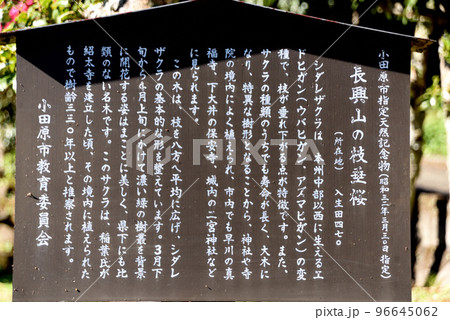 小田原市指定天然記念物(昭和三二年三月三〇日指定)
長興山の枝垂桜
(所在地) 入生田四七〇
シダレザクラは、本州中部以西に生えるエ
ドヒガン(ウバヒガン、アズマヒガン)の変
種で、枝が垂れ下がる点が特徴です。また、
サクラの種類のうちでも寿命が長く、大木に
なり、特異な樹形となることから、神社や寺
院の境内によく植えられ、市内でも早川の真
福寺、下大井の保安寺、城内の二宮神社など
に見られます。
この木は、枝を八方へ平均に広げ、シダレ
ザクラの基本的な形を整えています。3月下
旬から4月上旬にかけ、濃い緑の樹叢を背景
に開花する姿はまことに美しく、県下にも比
類のない名木です。このサクラは、稲葉氏が
紹太寺を建立した頃、その境内に植えられた
もので樹齢三三〇年以上と推察されます。
小田原市教育委員会
96645062